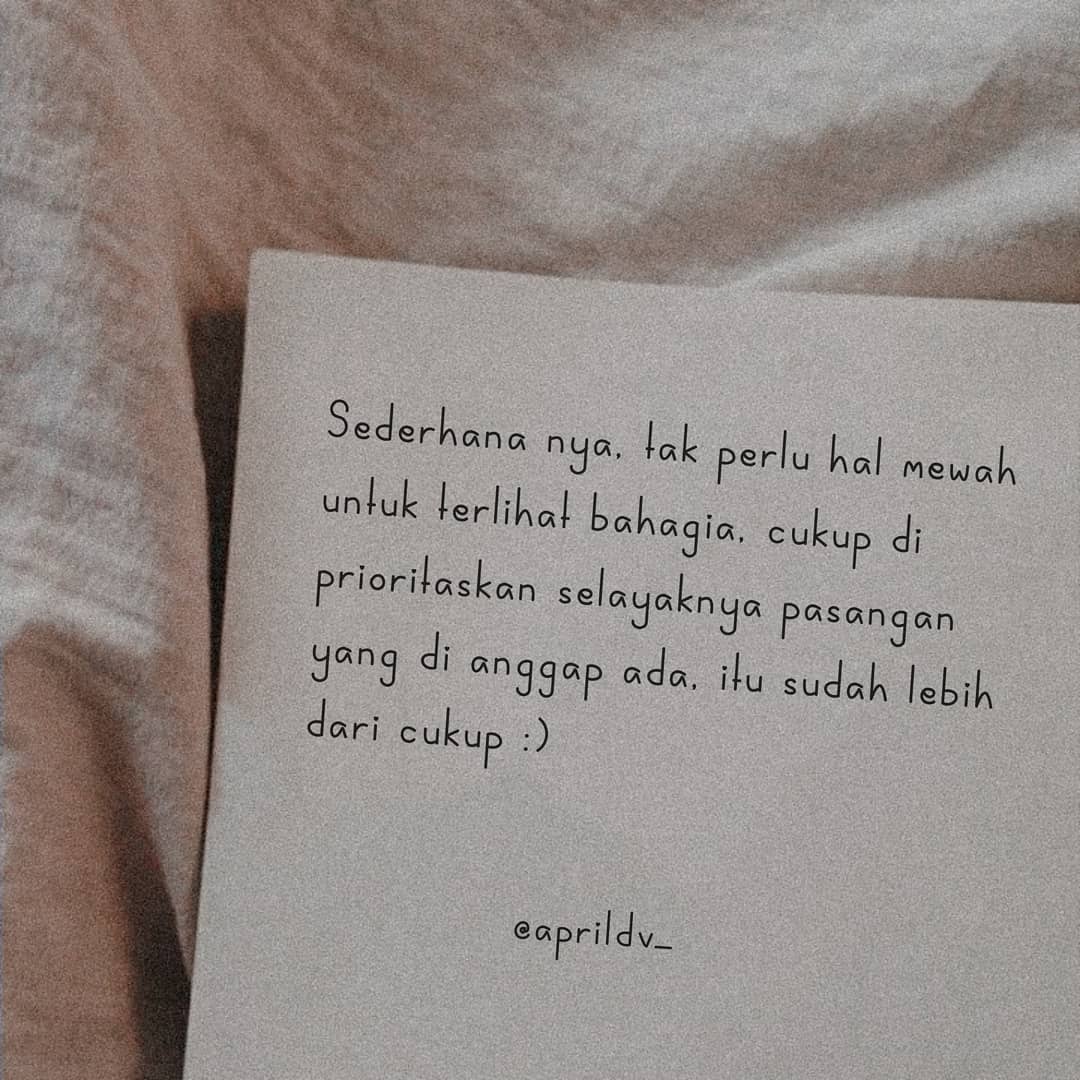 Sederhana nya, tak perlu hal mewah
untuk terlihat bahagia, cukup di
prioritaskan selayaknya pasangan
yang di anggap ada, itu sudah lebih
dari cukup :)
@aprildv_